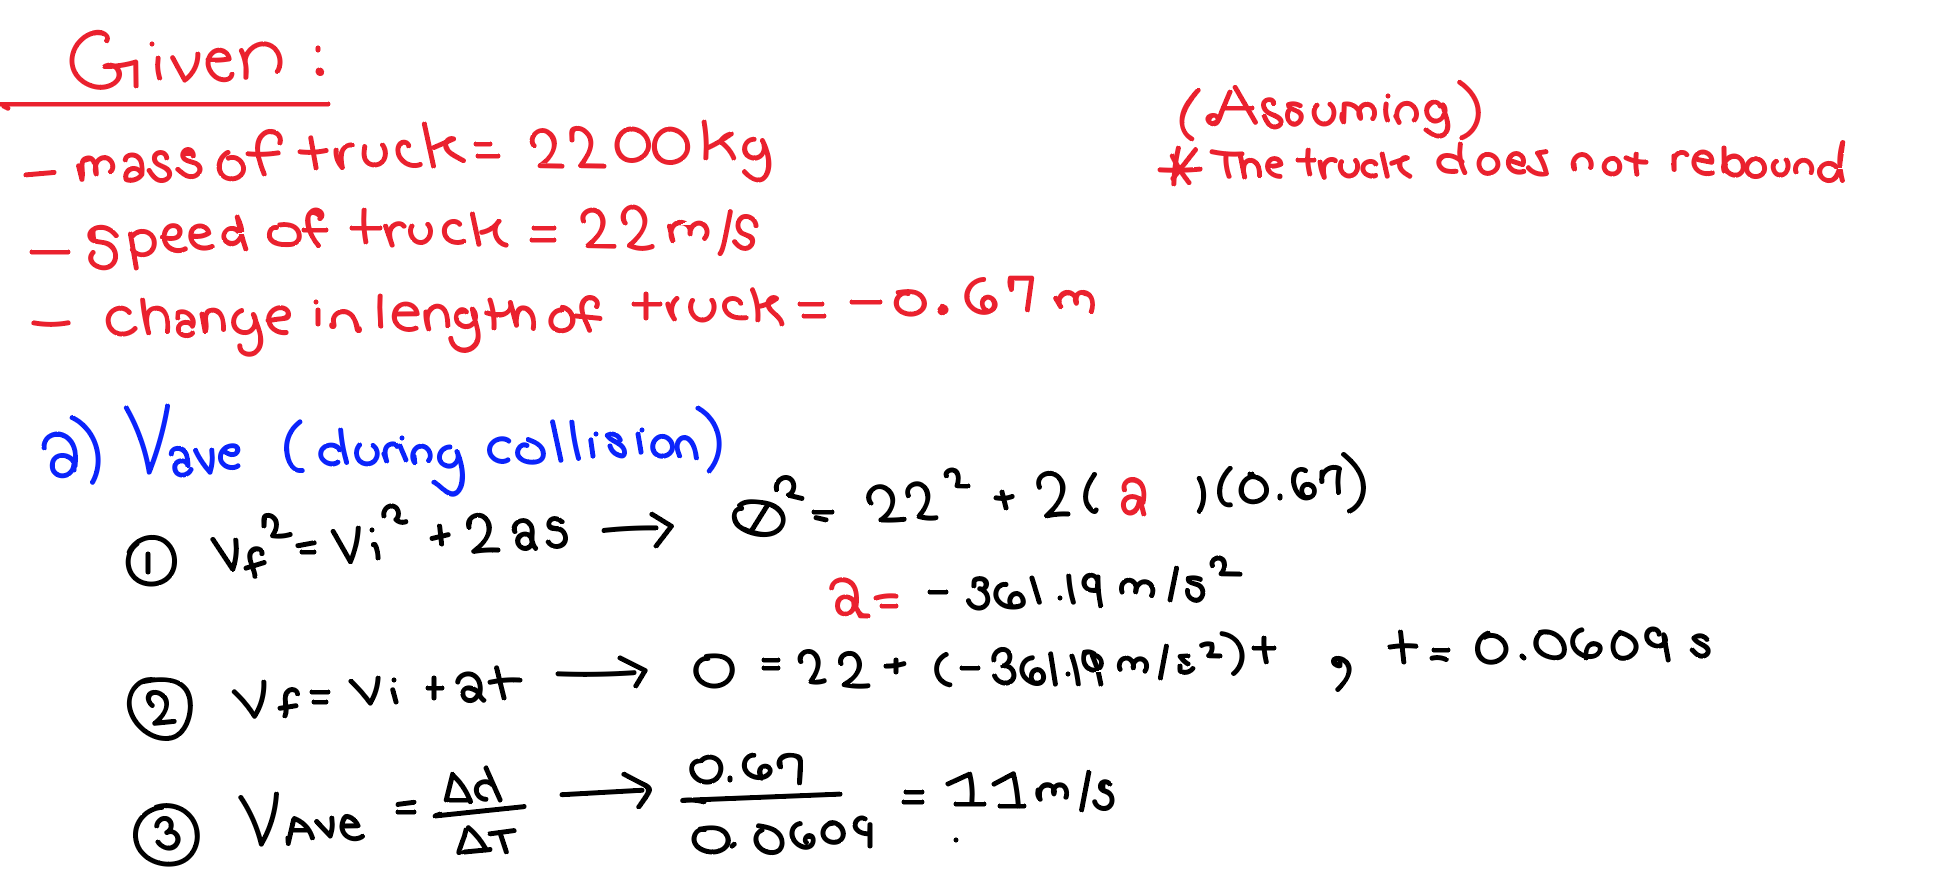 Given :
- mass of truck = 2200 kg
- Speed of truck = 22 m/s
- change in length of truck = -0.67 m
(Assuming)
* The truck does not rebound
a) Vave (during collision)
① Vf² = Vi² + 2as → 0² = 22² + 2( a )(0.67)
a = - 361.19 m/s²
② Vf = Vi + at → 0 = 22 + (-361.19 m/s²)t , t = 0.0609 s
③ VAve = Δd/ΔT → 0.67/0.0609 = 11 m/s